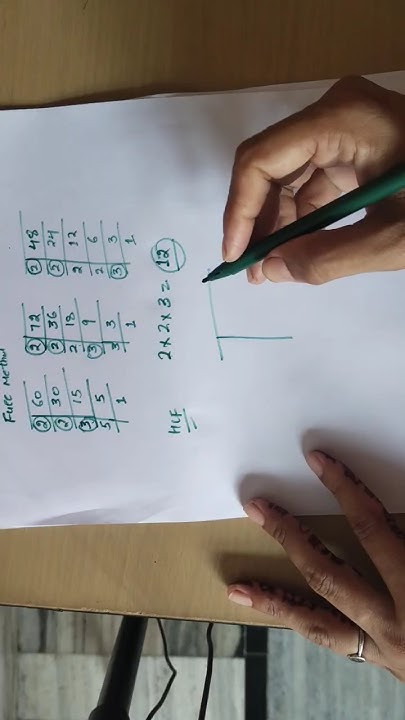 Full Method
2 60 2 72 2 48
2 30 2 36 2 24
3 15 2 18 2 12
5 5 3 9 2 6
1 3 3 3 3
1 1
HCF 2 x 2 x 3 = 12